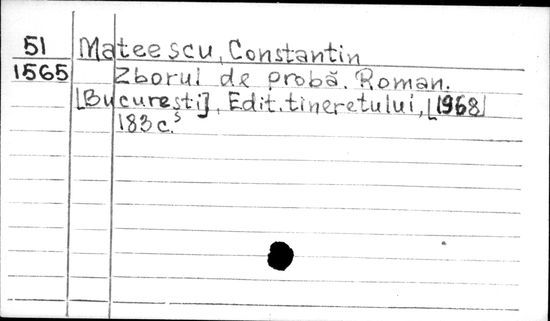 51 Mateescu, Constantin
1565 Zborul de probă. Roman.
[București], Edit. tineretului, [1968]
183 c.